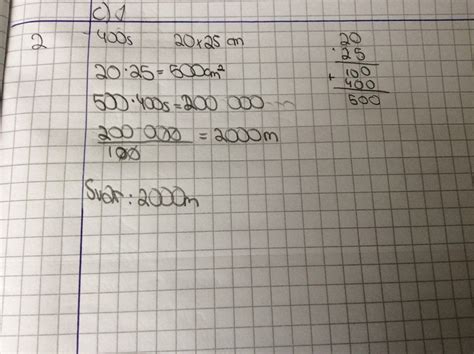 c) 1
2 400s 20x25 cm
20·25=500cm²
500·400s=200 000
200·000 = 2000m
100
Svar: 2000m
20
·25
100
+400
500